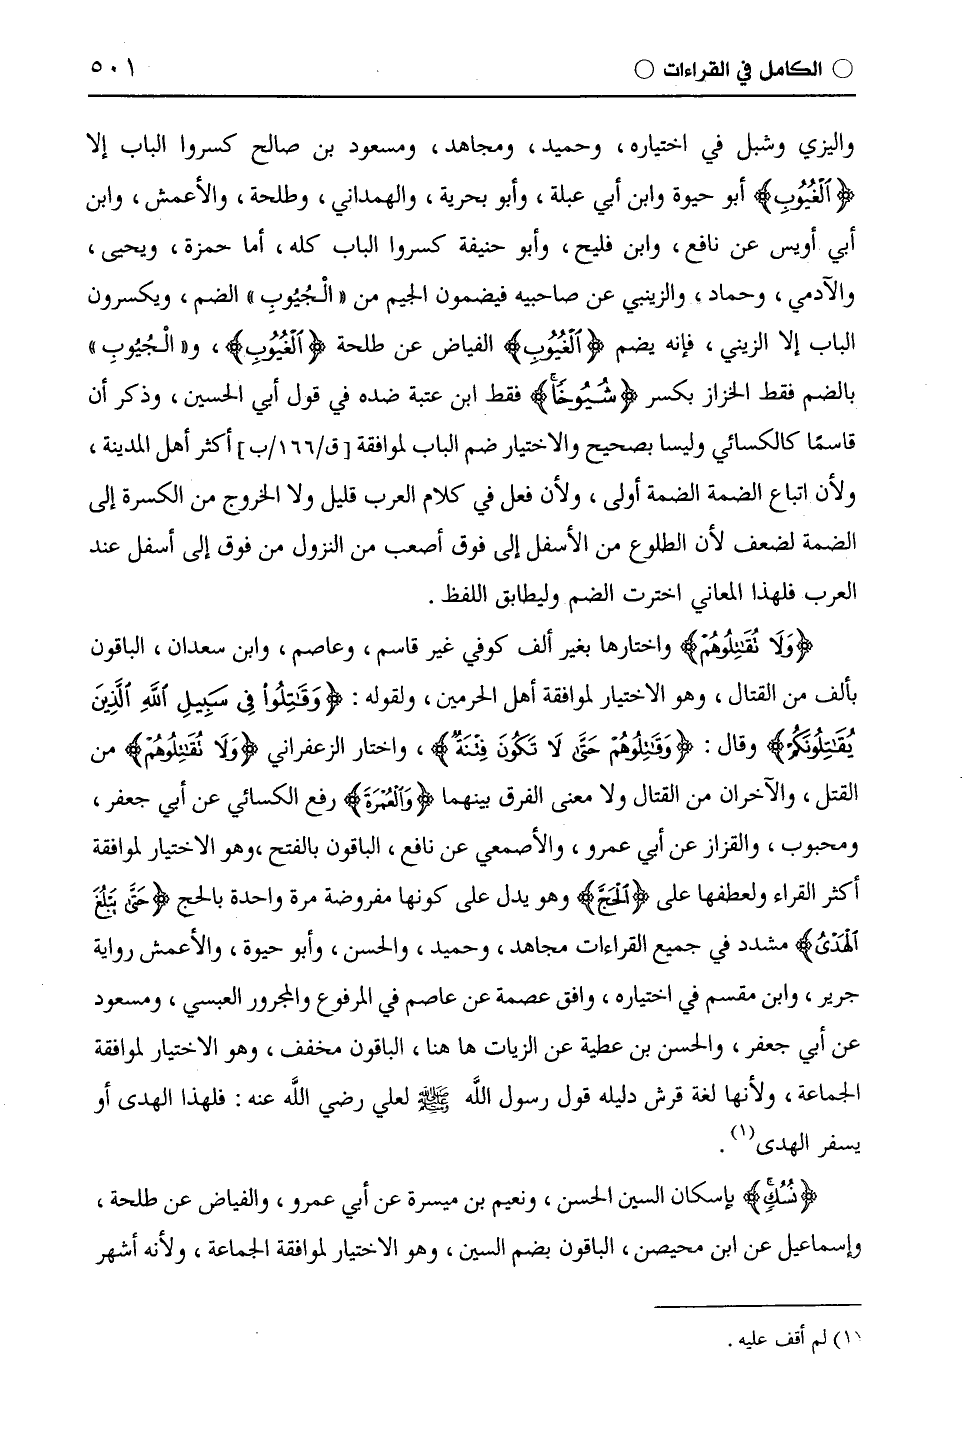 ○ الكامل في القراءات ○ ٥٠١
واليزي وشبل في اختياره، وحميد، ومجاهد، ومسعود بن صالح كسروا الباب إلا
﴿ٱلْغُيُوبِ﴾ أبو حيوة وابن أبي عبلة، وأبو بحرية، والهمداني، وطلحة، والأعمش، وابن
أبي أويس عن نافع، وابن فليح، وأبو حنيفة كسروا الباب كله، أما حمزة، ويحيى،
والآدمي، وحماد، والزينبي عن صاحبيه فيضمون الجيم من «الْجُيُوبِ» الضم، ويكسرون
الباب إلا الزيني، فإنه يضم ﴿ٱلْغُيُوبِ﴾ الفياض عن طلحة ﴿ٱلْغُيُوبِ﴾، و«الْجُيُوبِ»
بالضم فقط الخزاز بكسر ﴿شُيُوخًا﴾ فقط ابن عتبة ضده في قول أبي الحسين، وذكر أن
قاسمًا كالكسائي وليسا بصحيح والاختيار ضم الباب لموافقة [ق/١٦٦/ب] أكثر أهل المدينة،
ولأن اتباع الضمة الضمة أولى، ولأن فعل في كلام العرب قليل ولا الخروج من الكسرة إلى
الضمة لضعف لأن الطلوع من الأسفل إلى فوق أصعب من النزول من فوق إلى أسفل عند
العرب فلهذا المعاني اخترت الضم وليطابق اللفظ.
﴿وَلَا تُقَٰتِلُوهُمْ﴾ واختارها بغير ألف كوفي غير قاسم، وعاصم، وابن سعدان، الباقون
بألف من القتال، وهو الاختيار لموافقة أهل الحرمين، ولقوله: ﴿وَقَٰتِلُوا۟ فِى سَبِيلِ ٱللَّهِ ٱلَّذِينَ
يُقَٰتِلُونَكُمْ﴾ وقال: ﴿وَقَٰتِلُوهُمْ حَتَّىٰ لَا تَكُونَ فِتْنَةٌ﴾، واختار الزعفراني ﴿وَلَا تُقَٰتِلُوهُمْ﴾ من
القتل، والآخران من القتال ولا معنى الفرق بينهما ﴿وَٱلْعُمْرَةَ﴾ رفع الكسائي عن أبي جعفر،
ومحبوب، والقزاز عن أبي عمرو، والأصمعي عن نافع، الباقون بالفتح ،وهو الاختيار لموافقة
أكثر القراء ولعطفها على ﴿ٱلْحَجَّ﴾ وهو يدل على كونها مفروضة مرة واحدة بالحج ﴿حَتَّىٰ يَبْلُغَ
ٱلْهَدْىُ﴾ مشدد في جميع القراءات مجاهد، وحميد، والحسن، وأبو حيوة، والأعمش رواية
جرير، وابن مقسم في اختياره، وافق عصمة عن عاصم في المرفوع والمجرور العبسي، ومسعود
عن أبي جعفر، والحسن بن عطية عن الزيات ها هنا، الباقون مخفف، وهو الاختيار لموافقة
الجماعة، ولأنها لغة قرش دليله قول رسول اللَّه ﷺ لعلي رضي اللَّه عنه: فلهذا الهدى أو
يسفر الهدى(١).
﴿نُسُكٍ﴾ بإسكان السين الحسن، ونعيم بن ميسرة عن أبي عمرو، والفياض عن طلحة،
وإسماعيل عن ابن محيصن، الباقون بضم السين، وهو الاختيار لموافقة الجماعة، ولأنه أشهر
(١) لم أقف عليه.